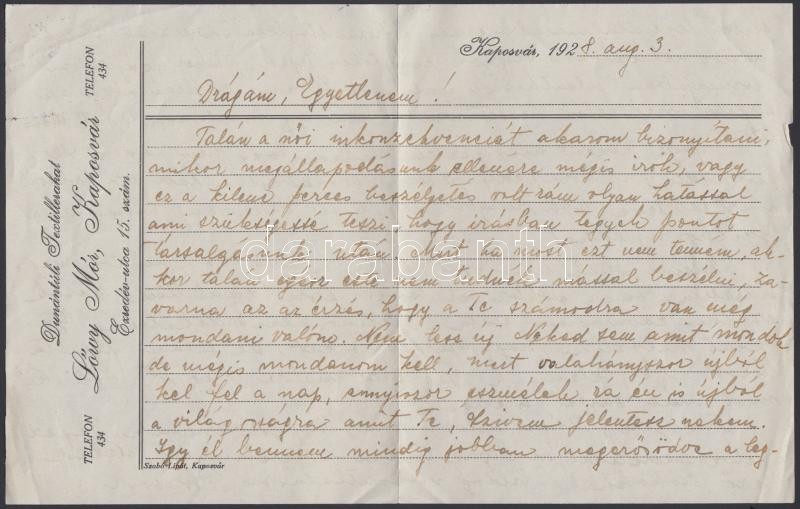 Kaposvár, 1928. aug. 3.
Drágám, Egyetlenem!
Talán a női inkonzekvenciát akarom bizonyítani,
mikor megállapodásunk ellenére mégis irok, vagy
ez a kilenc perces beszélgetés volt rám olyan hatással
ami szükségessé teszi, hogy irásban tegyek pontot
társalgásunk után. Mert ha most ezt nem tenném, ak-
kor talán egész este nem tudnék mással beszélni, za-
varna az az érzés, hogy a Te számodra van még
mondani valóm. Nem lesz új Neked sem amit mondok
de mégis mondanom kell, mert valahányszor újból
kel fel a nap, ennyiszor eszmélek rá én is újból
a világosságra amit Te, Szivem jelentesz nekem.
Igy él bennem mindig jobban megerősödve a leg-
TELEFON
434
Dunántúli Textillerakat
Löwy Mór, Kaposvár
Ezredév-utca 15. szám.
TELEFON
434
Szabó Lipót, Kaposvár
darabanth